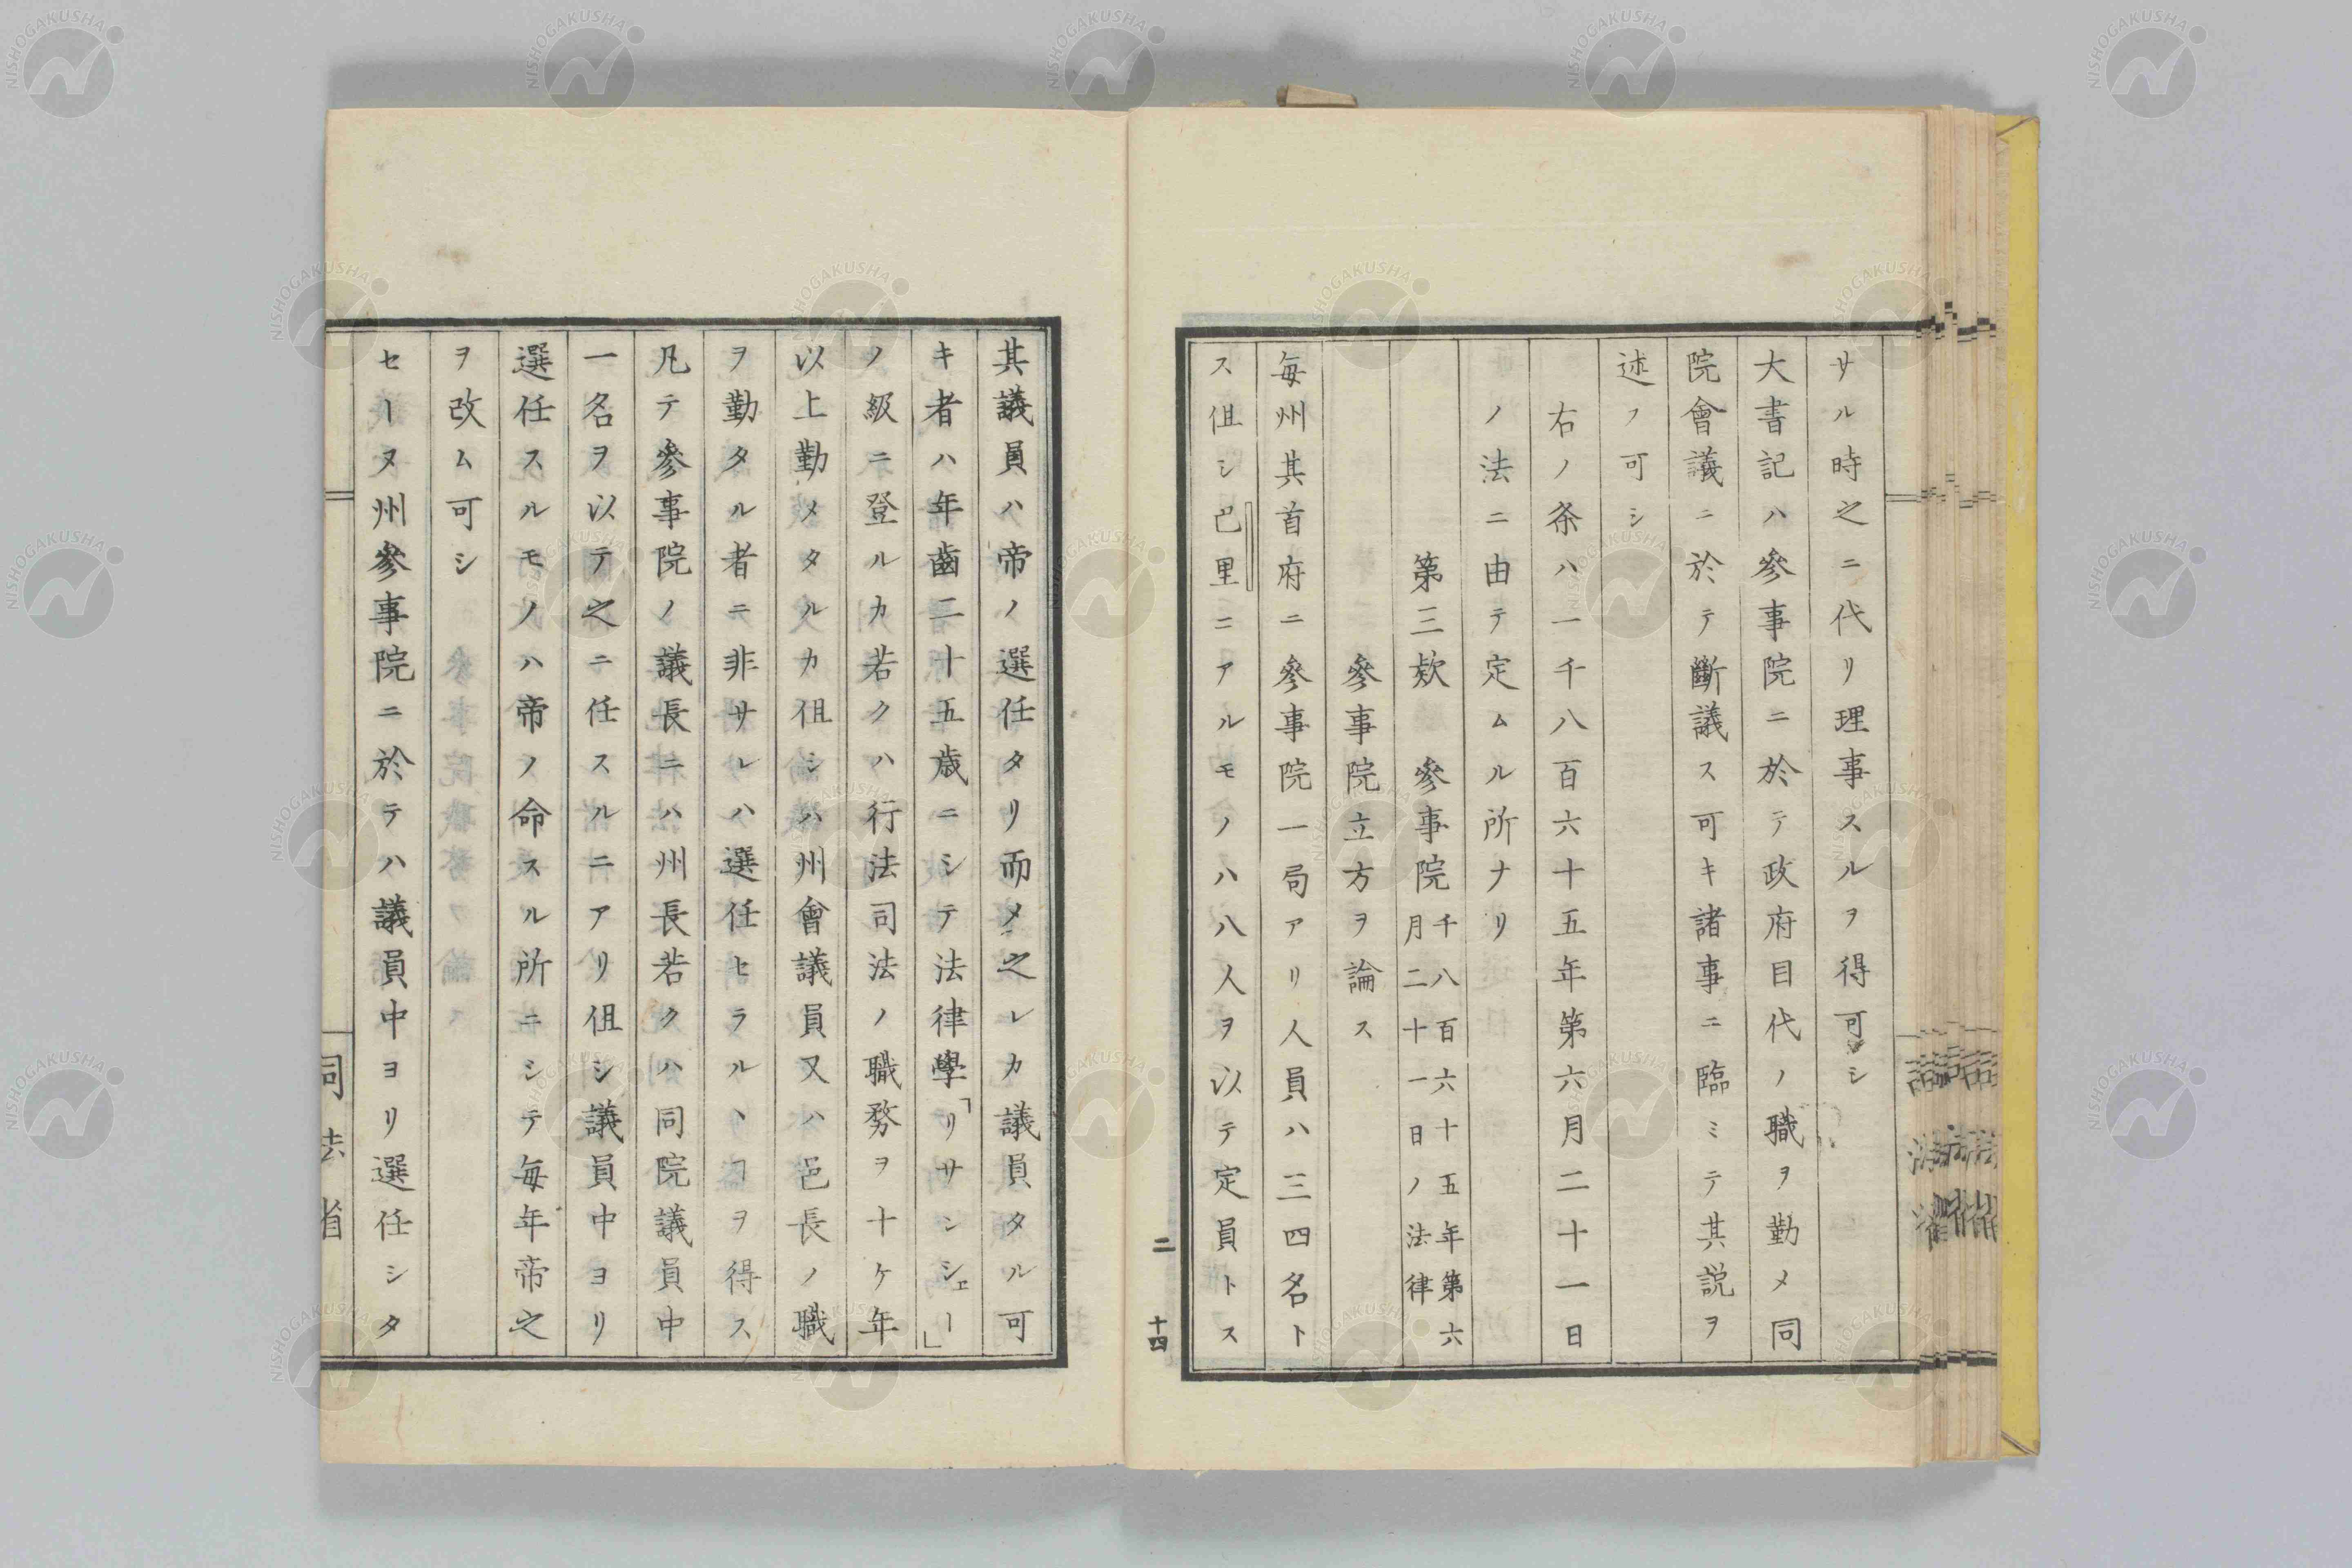 サル時之ニ代リ理事スルヲ得可シ
大書記ハ參事院ニ於テ政府目代ノ職ヲ勤メ同
院會議ニ於テ斷議ス可キ諸事ニ臨ミテ其説ヲ
述フ可シ
右ノ条ハ一千八百六十五年第六月二十一日
ノ法ニ由テ定ムル所ナリ
第三欵 參事院 千八百六十五年第六
月二十一日ノ法律
參事院立方ヲ論ス
毎州其首府ニ參事院一局アリ人員ハ三四名ト
ス伹シ巴里ニアルモノハ八人ヲ以テ定員トス
二
十四
其議員ハ帝ノ選任タリ而メ之レカ議員タル可
キ者ハ年齒二十五歳ニシテ法律學「リサンシェー」
ノ級ニ登ルカ若クハ行法司法ノ職務ヲ十ケ年
以上勤メタルカ伹シハ州會議員又ハ邑長ノ職
ヲ勤タル者ニ非サレハ選任セラルヽヿヲ得ス
凡テ參事院ノ議長ニハ州長若クハ同院議員中
一名ヲ以テ之ニ任スルニアリ伹シ議員中ヨリ
選任スルモノハ帝ノ命スル所ニシテ毎年帝之
ヲ改ム可シ
セーヌ州參事院ニ於テハ議員中ヨリ選任シタ
司法省
NISHOGAKUSHA